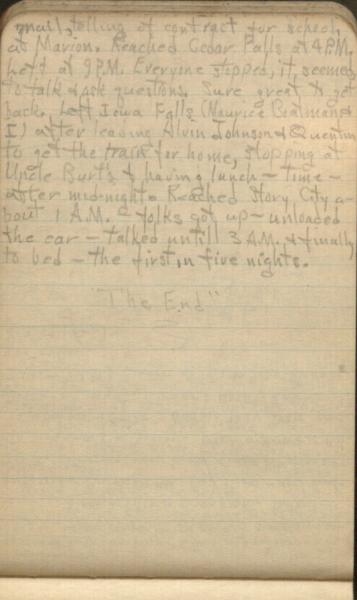 mail, telling of contract for school,
at Marion. Reached Cedar Falls at 4 P.M.
Left at 9 P.M. Everyone stopped, it, seems
to talk & ask questions. Sure great to get
back. Left Iowa Falls (Maurice Beatman &
I) after leaving Alvin Johnson & Quentin
to get the train for home, stopping at
Uncle Burt's & having lunch - time -
after midnight. Reached Story City a-
bout 1 A.M. - folks got up - unloaded
the car - talked until 3 A.M. & finally
to bed - the first, in five nights.
"The End"